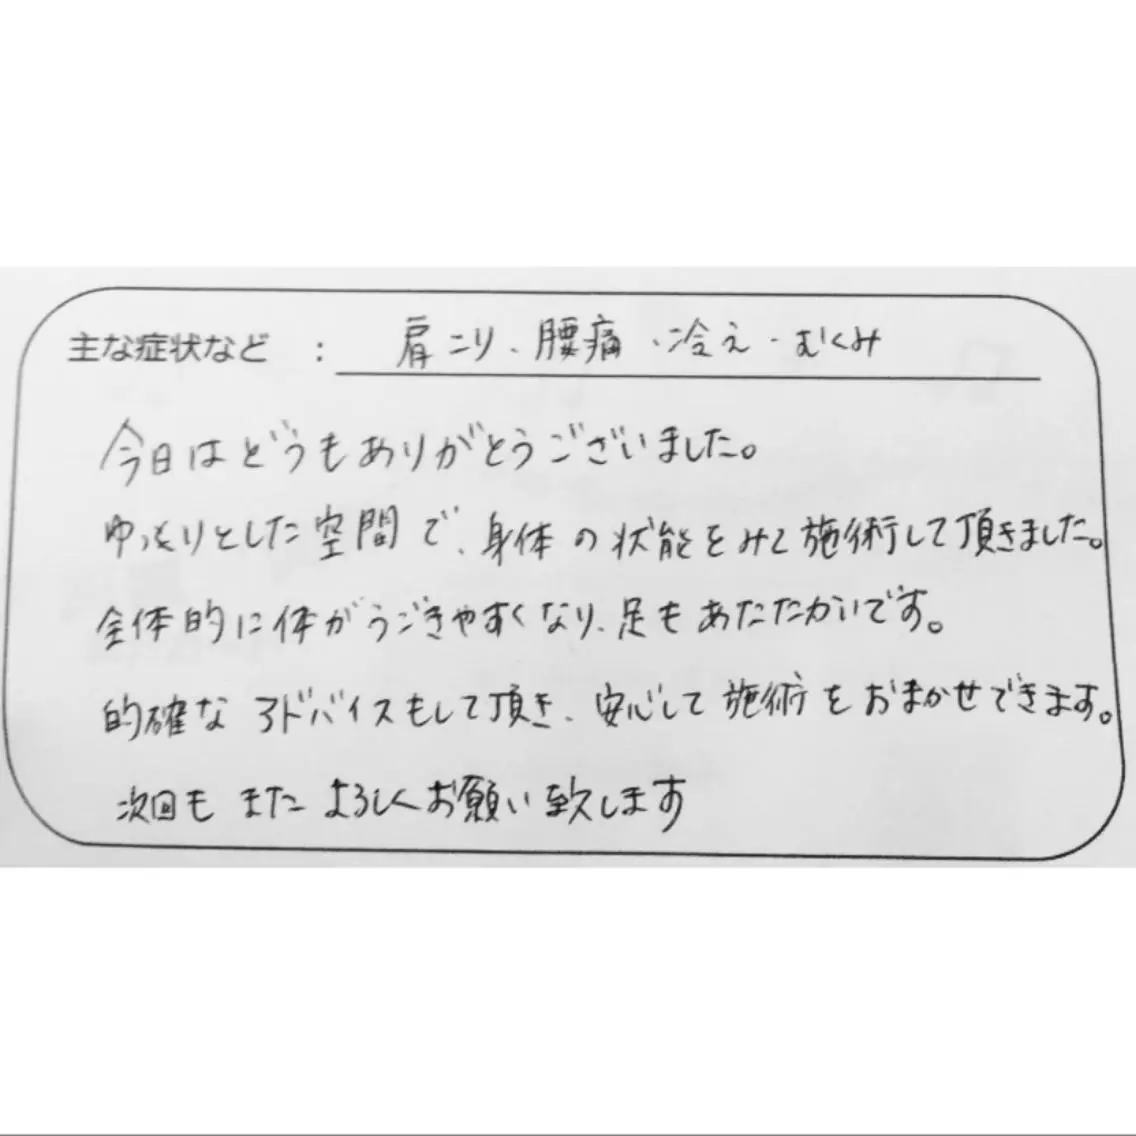 主な症状など : 肩こり、腰痛、冷え・むくみ
今日はどうもありがとうございました。
ゆったりとした空間で、身体の状態をみて施術して頂きました。
全体的に体がうごきやすくなり、足もあたたかいです。
的確なアドバイスもして頂き、安心して施術をおまかせできます。
次回もまたよろしくお願い致します